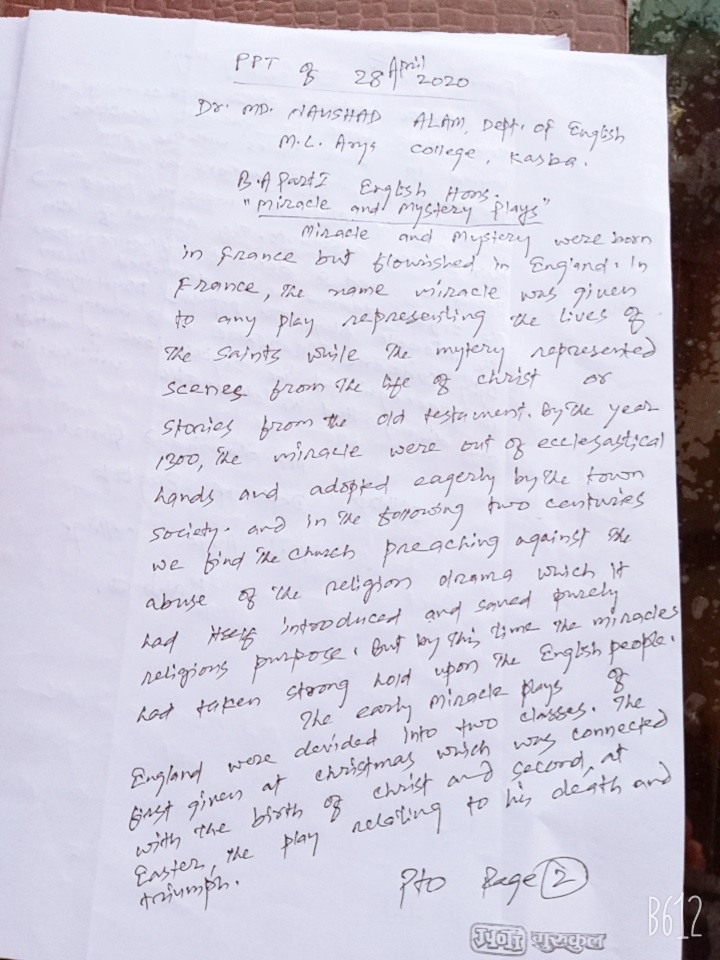 PPT of 28 April 2020
Dr. MD. NAUSHAD ALAM, Dept. of English
M.L. Arya College, Kasba.
B.A Part I English Hons.
"Miracle and Mystery Plays"
Miracle and Mystery were born
in France but flourished in England. In
France, the name miracle was given
to any play representing the lives of
the saints while the mytery represented
scenes from the life of Christ or
stories from the old testament. By the year
1300, the miracle were out of ecclesastical
hands and adopted eagerly by the town
society. and in the following two centuries
we find the church preaching against the
abuse of the religion drama which it
had itself introduced and saved purely
religions purpose. But by this time the miracles
had taken strong hold upon the English people.
The early Miracle plays of
England were devided into two classes. The
first given at christmas which was connected
with the birth of Christ and second, at
Easter, the play relating to his death and
triumph.
Pto Page 2
गुरुकुल
B612